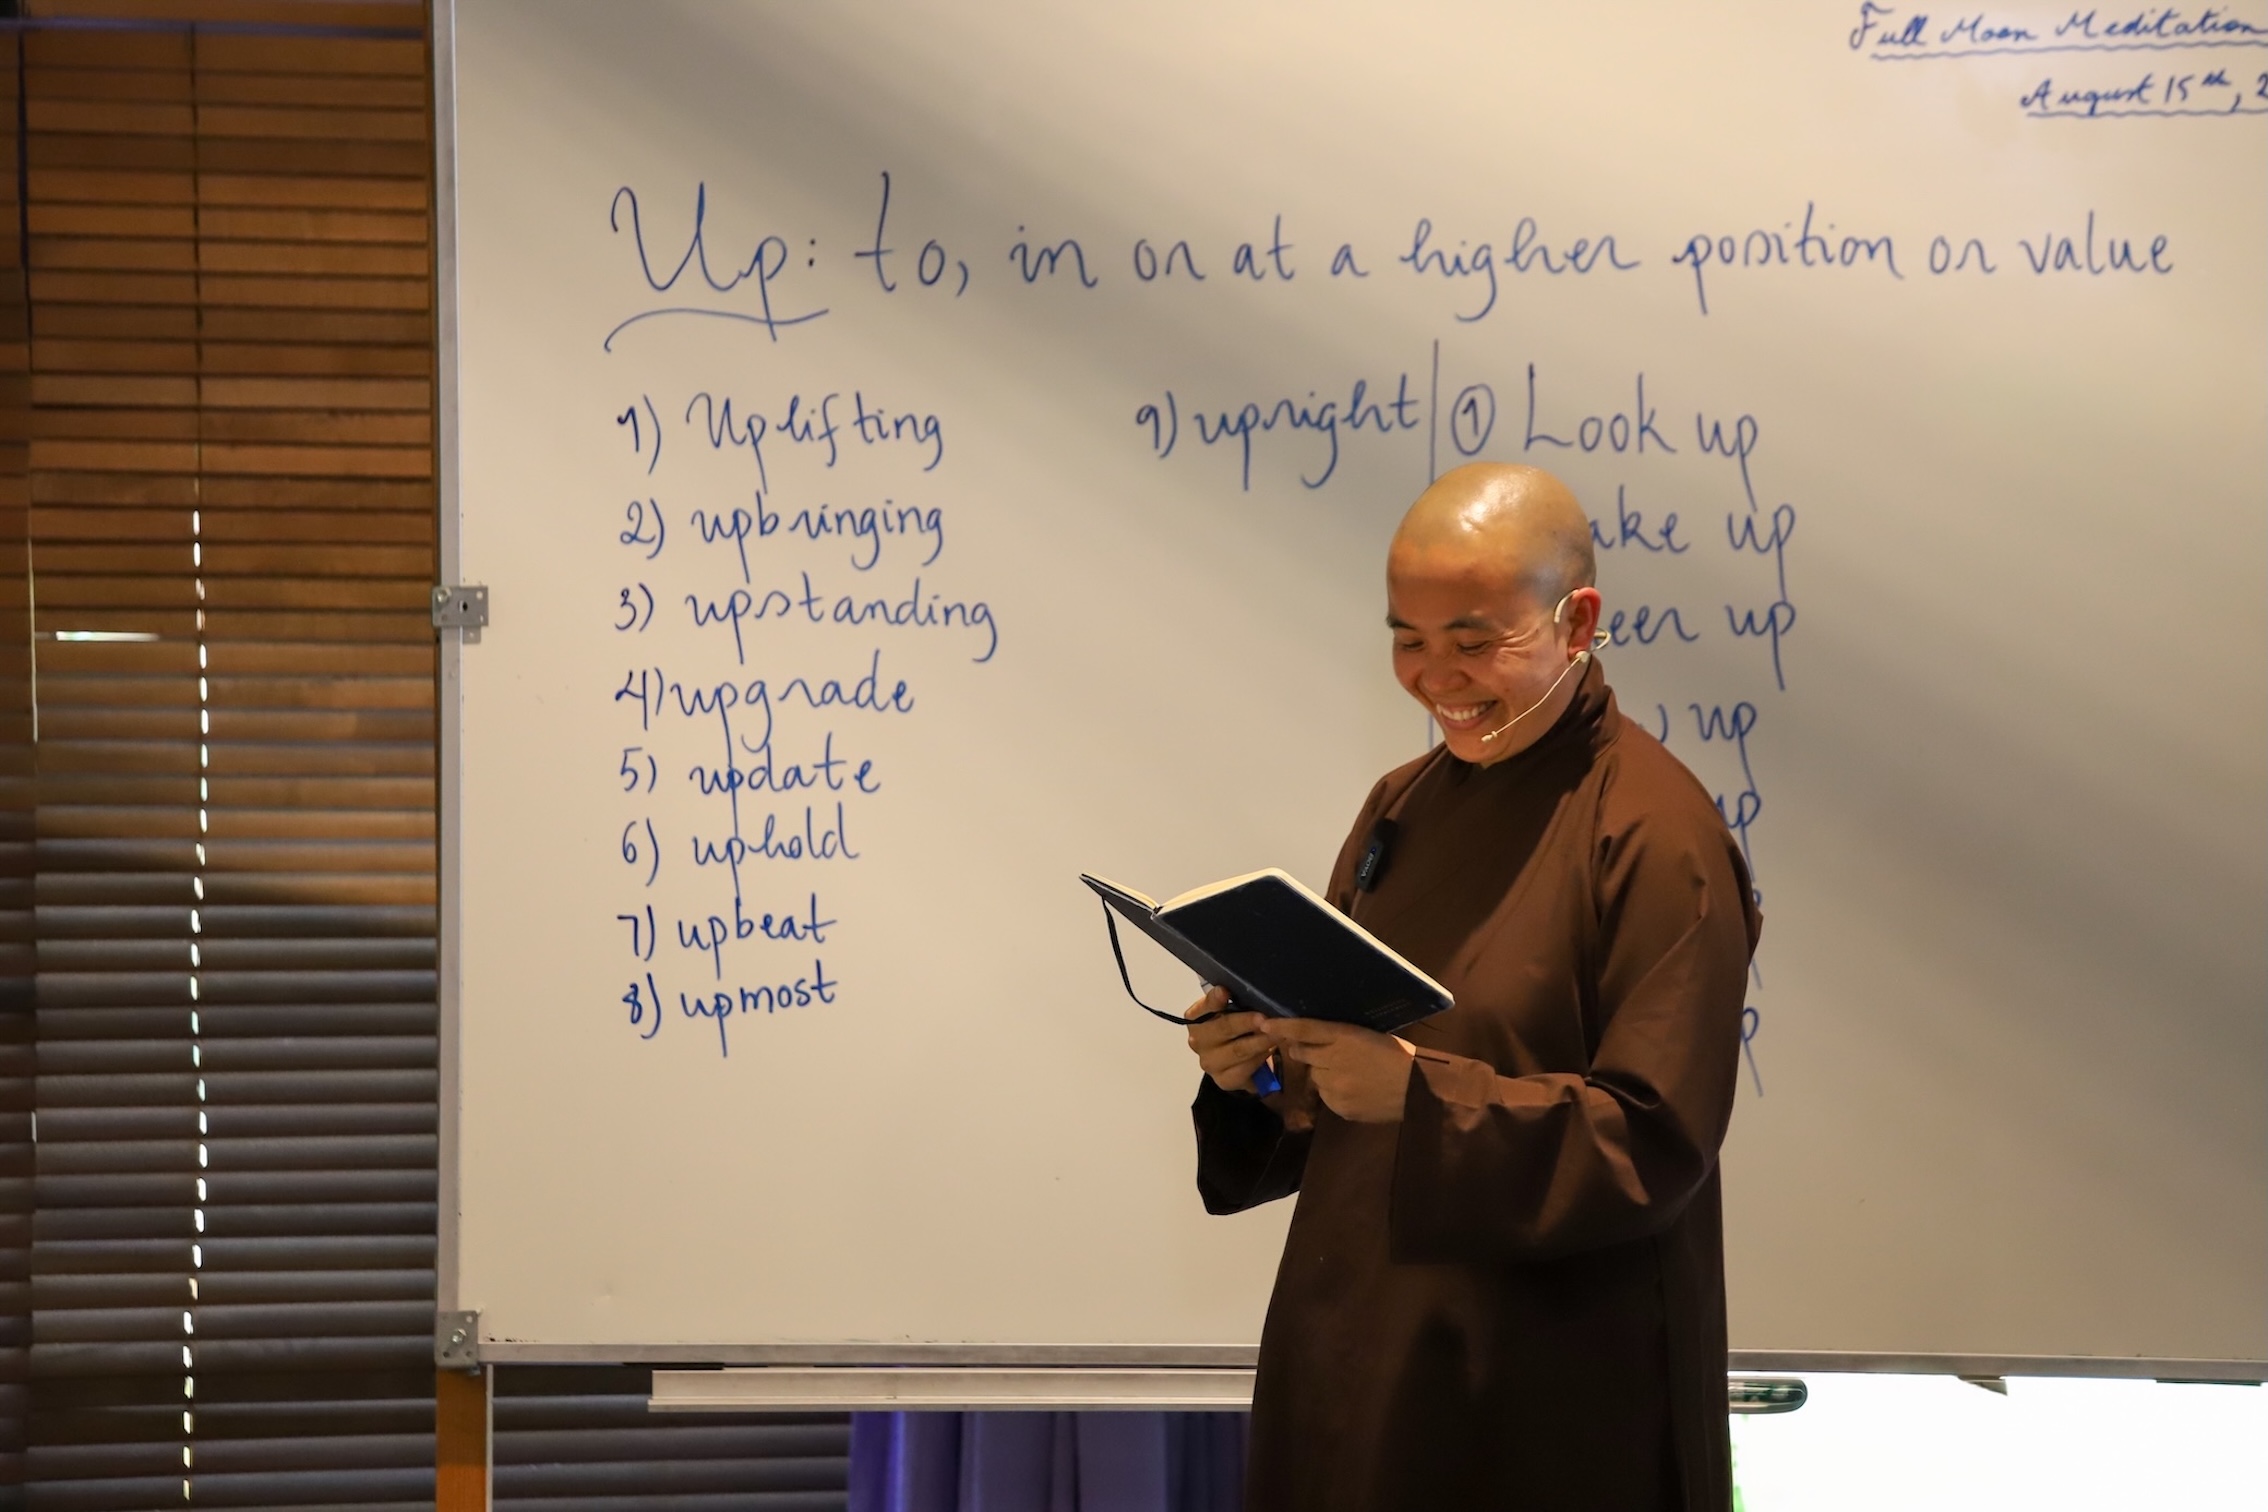 Full Moon Meditation
August 15th, 2
Up: to, in or at a higher position or value
1) Uplifting
2) upbringing
3) upstanding
4) upgrade
5) update
6) uphold
7) upbeat
8) upmost
9) upright
① Look up
up
up
up
up